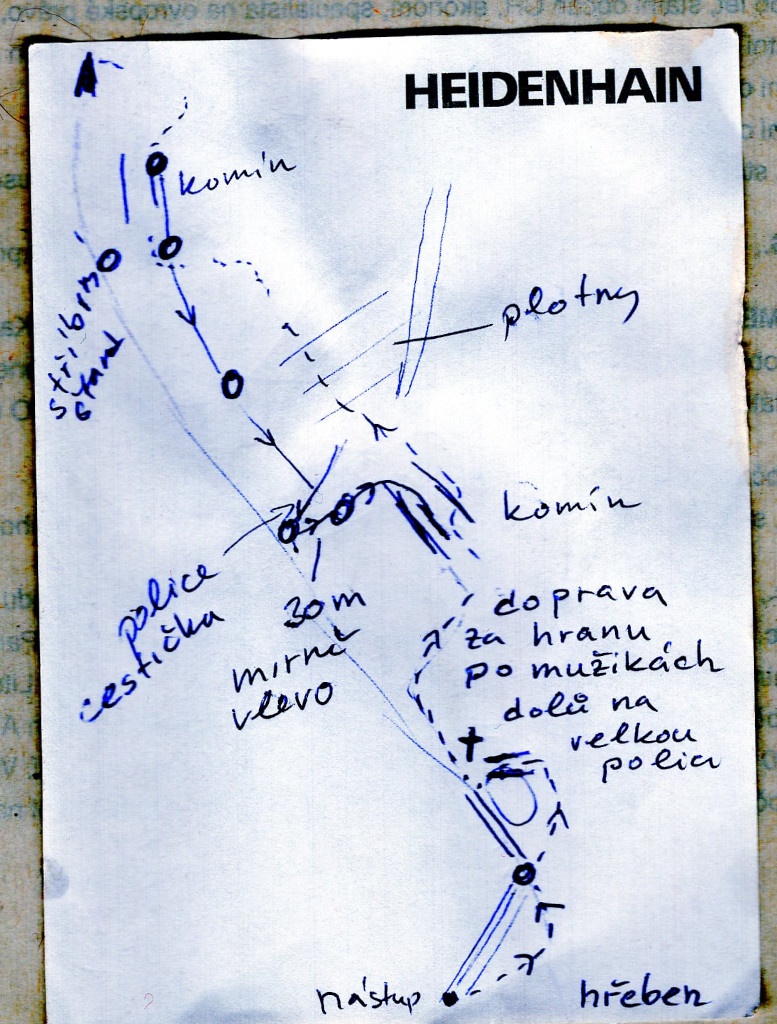 HEIDENHAIN
komín
stříbrná
plotny
komín
police
cestička
30m
mírně
vlevo
doprava
za hranu
po mužikách
dolů na
velkou
polici
nástup
hřeben